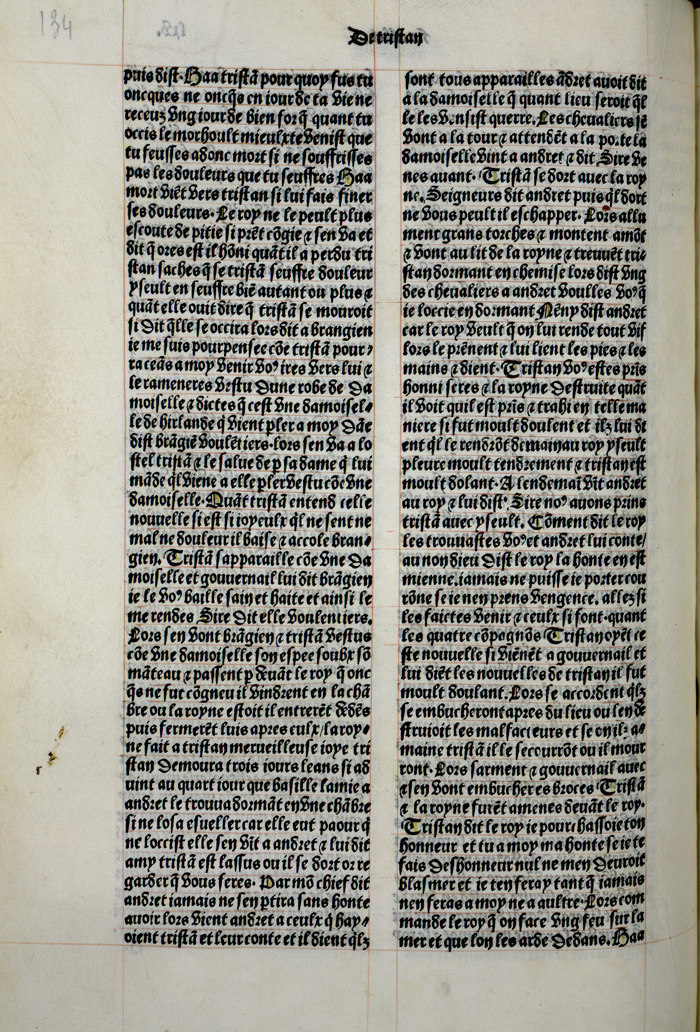 134
De tristan
puis dist. Haa tristã pour quoy fus tu
oncques ne oncq̃s en iour de ta vie ne
receuz vng iour de bien for q̃ quant tu
occis le morhoult mieulx te venist que
tu feusses adonc mort si ne souffrisses
pas les douleurs que tu seuffres Haa
mort viẽt vers tristan si lui fais finer
ses douleurs. Le roy ne le peult plus
escoute de pitie si prẽt cõgie ⁊ sen va et
dit q̃ ores est il hõni quãt il a perdu tri
stan saches q̃ se tristã seuffre douleur
yseult en seuffre biẽ autant ou plus ⁊
quãt elle ouit dire q̃ tristã se mouroit
si dit q̃lle se occira lors dit a brangien
ie me suis pourpensee cõe tristã pour⸗
ra ceãs a moy venir voꝰ ires vers lui ⁊
le rameneres vestu dune robe de da
moiselle ⁊ dictes q̃ cest vne damoisel⸗
le de hirlande q̃ vient ꝑler a moy dãe
dist brãgiẽ voulẽtiers. lors sen va a lo
stel tristã ⁊ le salue de ꝑ sa dame q̃ lui
mãde q̃l viene a elle ꝑler vestu cõe vne
damoiselle. Quãt tristã entend celle
nouuelle si est si ioyeulx q̃l ne sent ne
mal ne douleur il baise ⁊ accole bran⸗
gien. Tristã sapparaille cõe vne da
moiselle et gouuernail lui dit brãgien
ie le voꝰ baille sain et haite et ainsi le
me rendes Sire dit elle voulentiers.
Lors sen vont brãgien ⁊ tristã vestus
cõe vne damoiselle son espee soubz sõ
mãteau ⁊ passent ꝑ deuãt le roy q̃ onc
q̃s ne fut cõgneu il vindrent en la chã
bre ou la royne estoit il entrerẽt dedẽs
puis fermerẽt luis apres eulx / la roy⸗
ne fait a tristan merueilleuse ioye tri
stan demoura trois iours leans si ad
uint au quart iour que basille lamie a
andret le trouua dormãt en vne chãbre
si ne losa esueller car elle eut paour q̃
ne loccist elle sen vit a andret ⁊ lui dit
amy tristã est lassus ou il se dort or re
garder q̃ vous feres. Par mõ chief dit
andret iamais ne sen ꝑtira sans honte
auoir lors vient andret a ceulx q̃ hay⸗
oient tristã et leur conte et il dient q̃lz
sont tous apparailles ãdret auoit dit
a la damoiselle q̃ quant lieu seroit q̃l
le les venist querre. Les cheualiers sẽ
vont a la tour ⁊ attendẽt a la porte la
damoiselle vint a andret ⁊ dit Sire ve
nes auant. Tristã se dort auec la roy
ne. Seigneurs dit andret puis q̃l dort
ne vous peult il eschapper. Lors allu
ment grans torches ⁊ montent amõt
⁊ vont au lit de la royne ⁊ treuuẽt tri⸗
stan dormant en chemise lors dist vng
des cheualiers a andret voulles voꝰ q̃
ie loccie en dormant Nẽny dist andret
car le roy veult q̃ on lui rende tout vif
lors le prẽnent ⁊ lui lient les pies ⁊ les
mains ⁊ dient. Tristan voꝰ estes pris
honni seres ⁊ la royne destruite quãt
il voit quil est pris ⁊ trahi en telle ma
niere si fut moult doulent et ilz lui di
ent q̃l le rendrõt demain au roy yseult
pleure moult tendrement ⁊ tristan est
moult dolant. A lendemaĩ vit andret
au roy ⁊ lui dist. Sire noꝰ auons prins
tristã auec yseult. Cõment dit le roy
les trouuastes voꝰ et andret lui conte/
au non dieu dist le roy la honte en est
mienne. iamais ne puisse ie porter cou
rõne se ie nen prens vengence. allez si
les faictes venir ⁊ ceulx si font. quant
les quatre cõpagnõs Tristan oyẽt ce
ste nouuelle si viẽnẽt a gouuernail et
lui diẽt les nouuelles de tristan il fut
moult doulant. Lors se accordent q̃lz
se embucheront apres du lieu ou len de
struioit les malfacteurs et se on il⸗ a⸗
maine tristã il le secourrõt ou il mour
ront. Lors sarment ⁊ gouuernail auec
⁊ sen vont embucher es broces Tristã
⁊ la royne furẽt amenes deuãt le roy.
Tristan dit le roy ie pourchassoie ton
honneur et tu a moy ma honte se ie te
fais deshonneur nul ne men deuroit
blasmer et ie ten feray tant q̃ iamais
nen feras a moy ne a aultre. Lors com
mande le roy q̃ on face vng feu sur la
mer et que lon les arde dedans. Haa